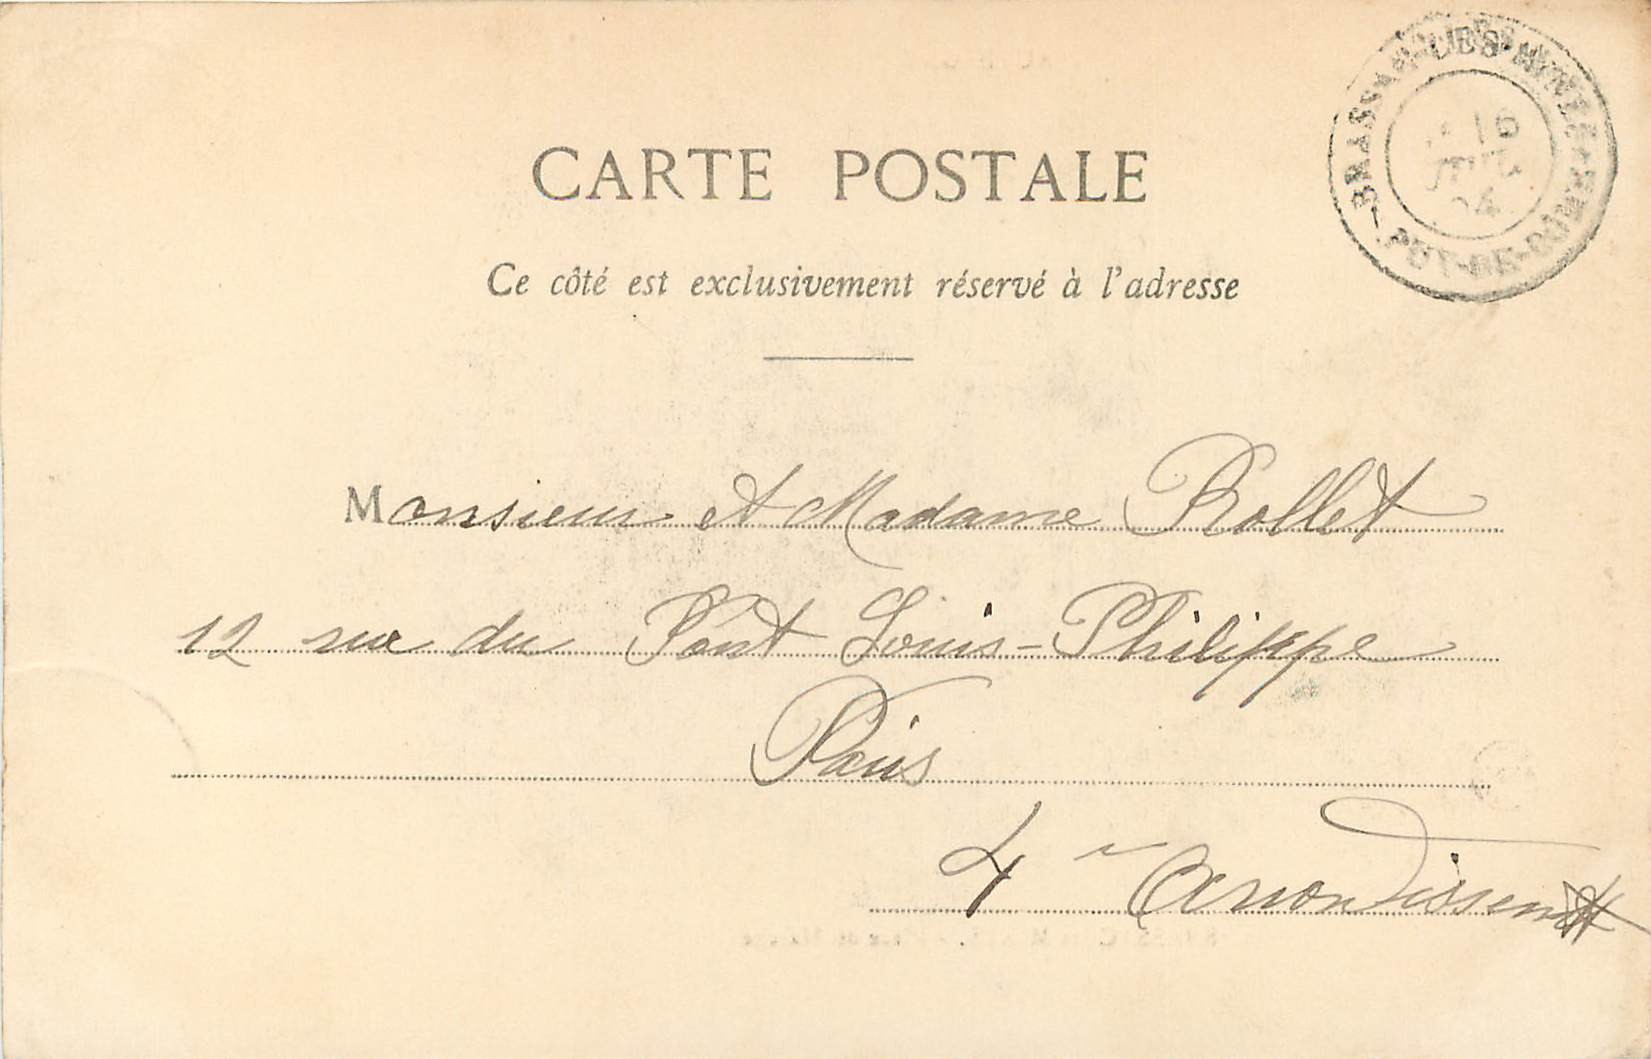 CARTE POSTALE
BRASSAC-LES-MINES
16
JUIL
04
PUY-DE-DOME
Ce côté est exclusivement réservé à l'adresse
Monsieur et Madame Rollet
12 rue du Pont Louis-Philippe
Paris
4e Arrondissement